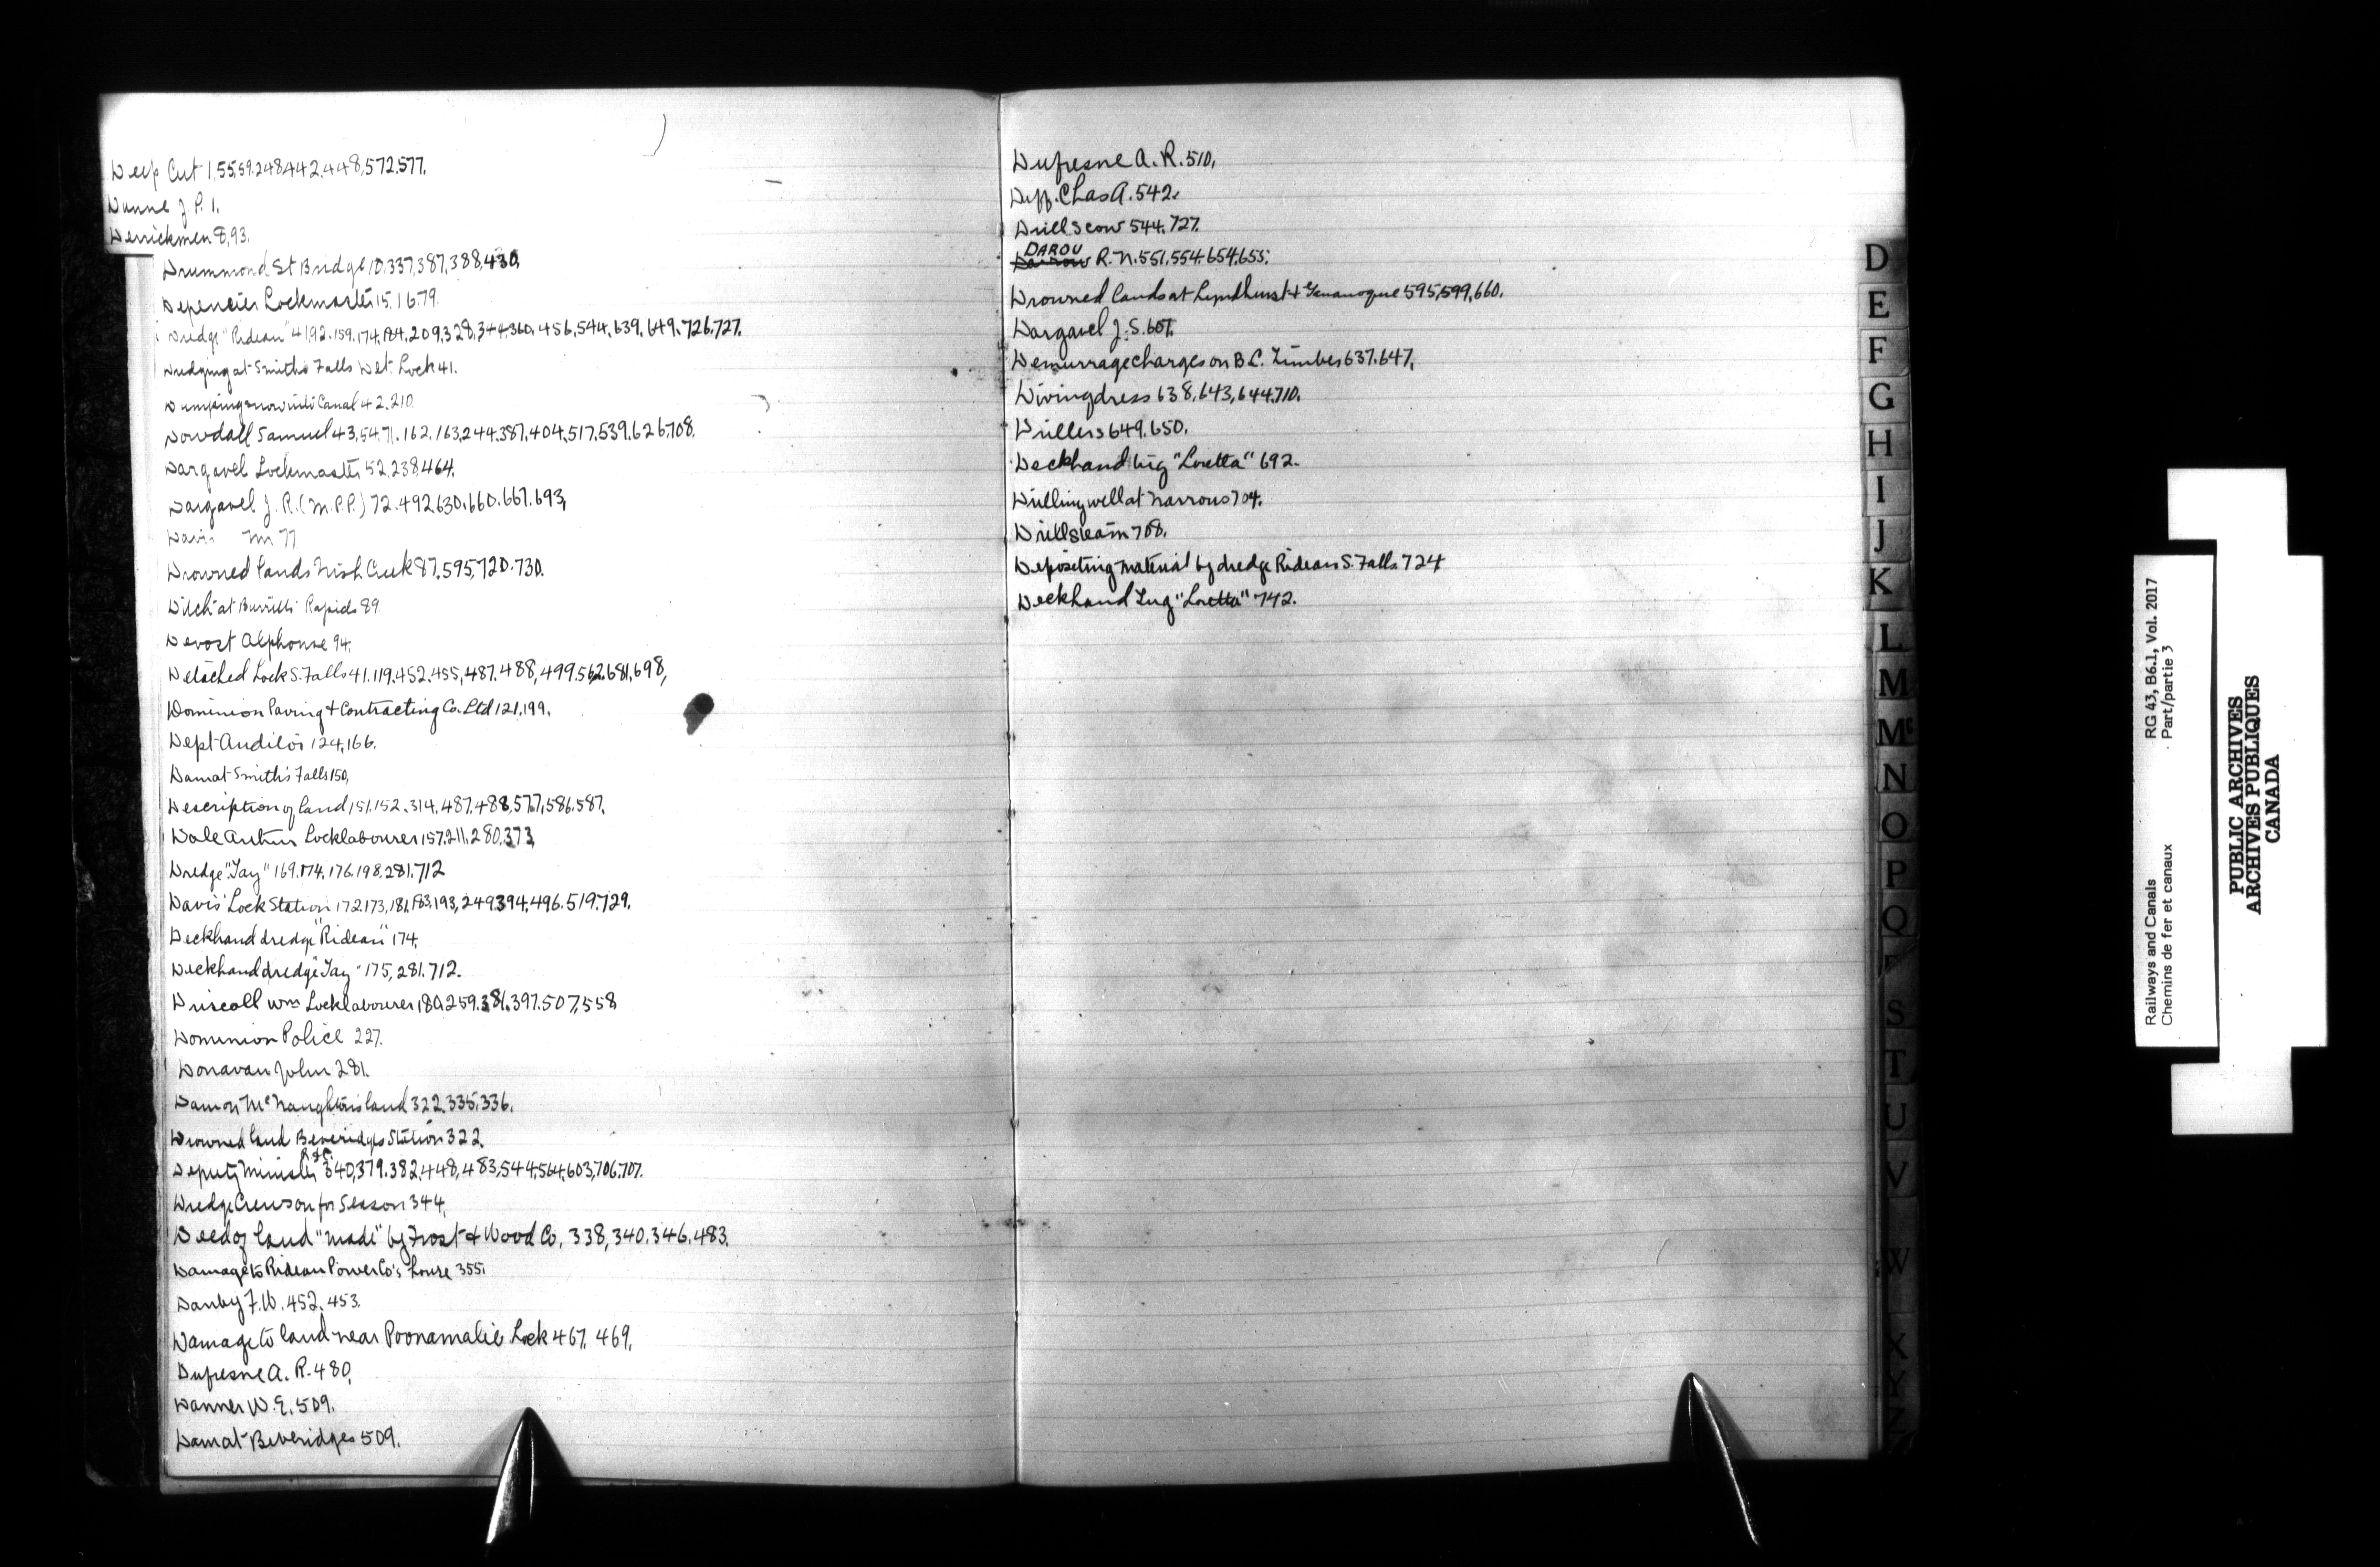 Deep Cut 1,55,59.248,442.448,572.577.
Dunne J. P. 1.
Derrickmen 8,93.
Drummond St Bridge 10.337,387,388,430,
Depencier Lockmaster 15.1679.
Dredge "Rideau" 41,92.159.174.184.209,328,344,360.456,544.639.649.726.727.
Dredging at Smiths Falls Det. Lock 41.
Dumping snow into Canal 42.210.
Dowdall Samuel 43,54.71.162.163,244.387.404,517.539.626,708.
Dargavel Lockmaster 52.238,464.
Dargavel J. R. (M.P.P.) 72.492.630.660.667.693,
Davis Mr 77
Drowned lands Irish Creek 87.595,720.730.
Ditch at Burritts Rapids 89.
Devost Alphonse 94.
Detached Lock S. Falls 41.119.452.455,487.488,499.562.681,698,
Dominion Paving & Contracting Co. Ltd 121,199.
Dept Auditor 124,166.
Dam at Smith's Falls 150,
Description of land 151.152.314.487.488,577,586.587.
Dale Arthur Locklabourer 157.211.280,373,
Dredge "Tay" 169.174.176.198.281.712
Davis' Lock Station 172.173,181,183.193,249,394,496.519.729.
Deckhand dredge "Rideau" 174.
Deckhand dredge "Tay" 175,281.712.
Driscoll Wm Locklabourer 180.259.381.397.507,558
Dominion Police 227.
Donavan John 281.
Dam on McNaughton's land 322.335.336.
Drowned land Beveridges Station 322.
Deputy Minister R & C. 340,379.382,448,483,544,564,603,706,707.
Dredge Crews on for Season 344.
Deed of land "made" by Frost & Wood Co. 338,340.346.483.
Damage to Rideau Power Co's house 355.
Danby F. W. 452.453.
Damage to land near Poonamalie Lock 467. 469.
Dufresne A. R. 480.
Danner W. E. 509.
Dam at Beveridges 509.
Dufresne A. R. 510.
Chas A. 542.
Drill scow 544.727.
DAROU R. N. 551,554.654,655.
Drowned lands at Lyndhurst & Gananoque 595,599,660.
Dargavel J. S. 607.
Demurrage charges on B.C. Timber 637.647.
Diving dress 638,643,644,710.
Drillers 649.650.
Deckhand tug "Loretta" 692.
Drilling well at Narrows 704.
Drill steam 708.
Depositing material by dredge Rideau S. Falls 724
Deckhand Tug "Loretta" 742.
D
E
F
G
H
I
J
K
L
M
Mc
N
O
P
Q
S
T
U
V
W
X
Y
Z
RG 43, B6.1, Vol. 2017
Part/partie 3
Railways and Canals
Chemins de fer et canaux
PUBLIC ARCHIVES
ARCHIVES PUBLIQUES
CANADA